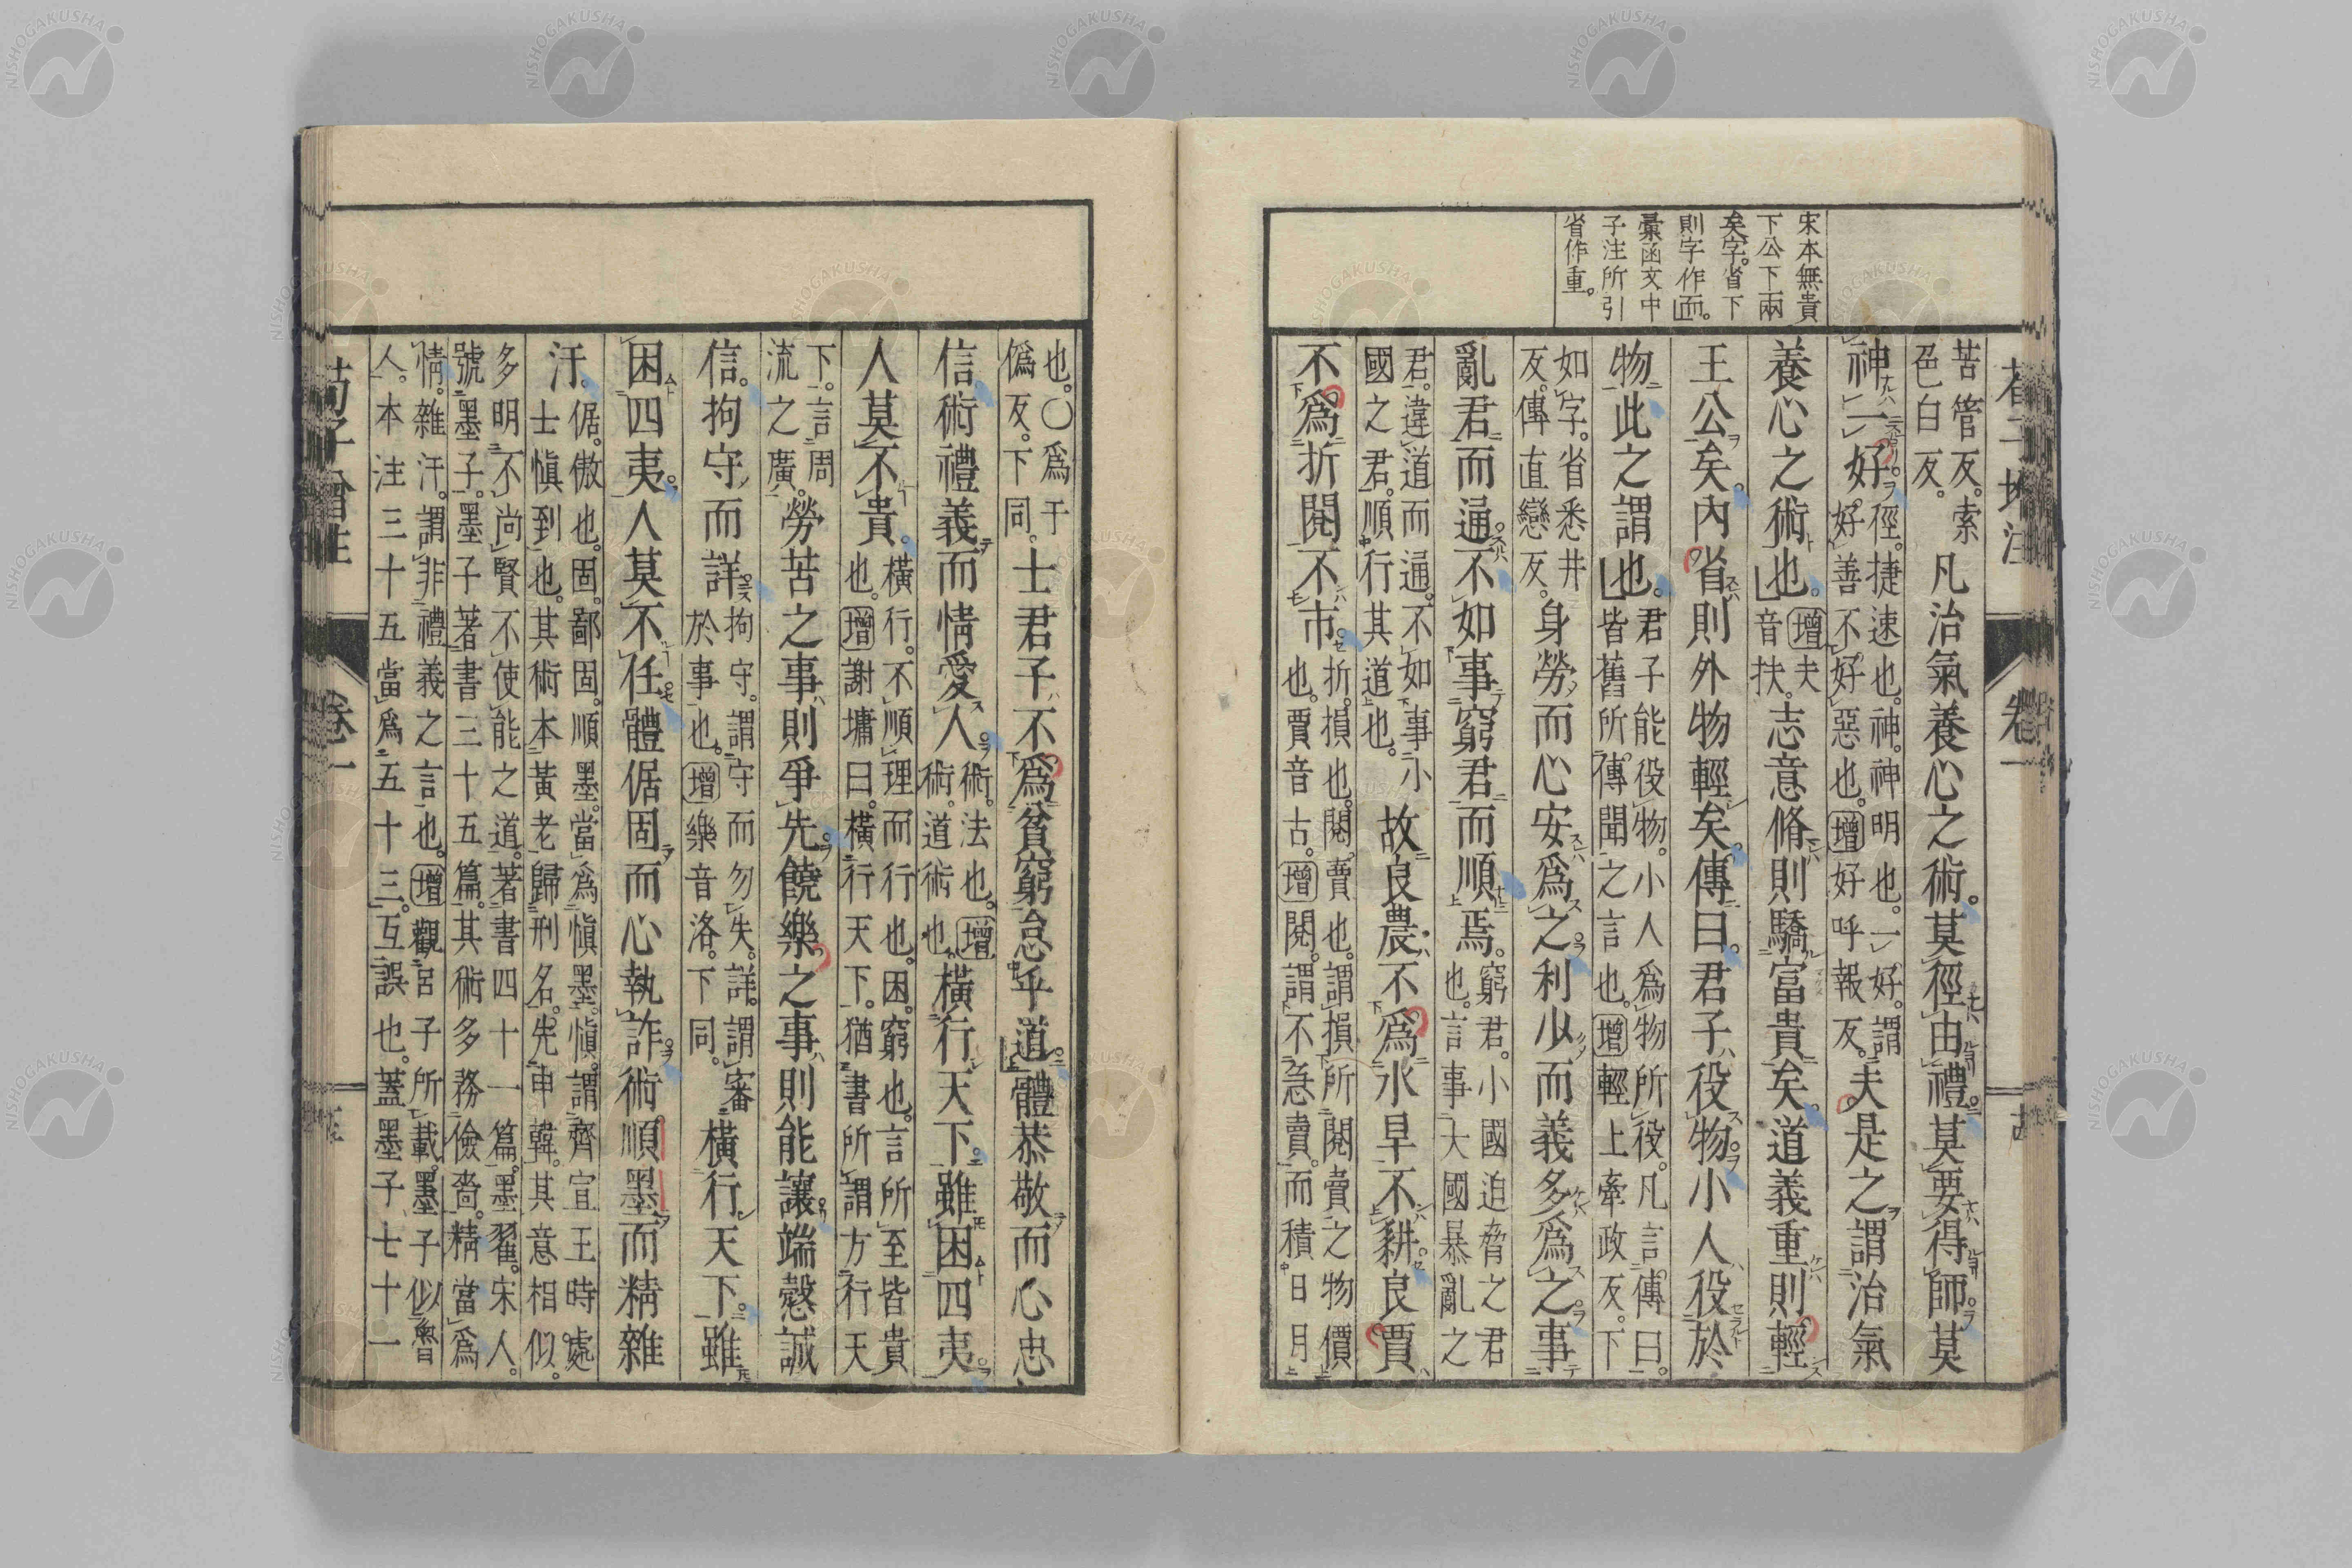 宋本無貴
下公下兩
矣字。省下
則字作而。
彙函文中
子注所引
省作重。
荀子增注 卷一
苦管反。索
色白反。
凡治氣養心之術。莫徑由禮。莫要得師。莫
神一好。
徑。捷速也。神。神明也。一好。謂
好善不好惡也。增好呼報反。
夫是之謂治氣
養心之術也。
增夫
音扶。
志意脩則驕富貴矣。道義重則輕
王公矣。內省則外物輕矣。傳曰。君子役物。小人役於
物。此之謂也。
君子能役物。小人爲物所役。凡言傳曰。
皆舊所傳聞之言也。增輕上牽政反。下
如字。省悉井
反。傳直戀反。
身勞而心安爲之。利少而義多爲之。事
亂君而通。不如事窮君而順焉。
窮君。小國迫脅之君
也。言事大國暴亂之
君。違道而通。不如事小
國之君。順行其道也。
故良農不爲水旱不耕。良賈
不爲折閱不市。
折。損也。閱。賣也。謂損所閱賣之物價
也。賈音古。增閱。謂不急賣。而積日月
也。〇爲于
僞反。下同。
士君子不爲貧窮怠乎道。體恭敬而心忠
信。術禮義而情愛人。
術。法也。增
術。道術也。
橫行天下。雖困四夷。
人莫不貴。
橫行。不順理而行也。困。窮也。言所至皆貴
也。增謝墉曰。橫行天下。猶書所謂方行天
下。言周
流之廣。
勞苦之事則爭先。饒樂之事則能讓。端愨誠
信。拘守而詳。
拘守。謂守而勿失。詳。謂審
於事也。增樂音洛。下同。
橫行天下。雖
困四夷。人莫不任。體倨固而心執詐。術順墨而精雜
汙。
倨。傲也。固。鄙固。順墨。當爲愼墨。愼。謂齊宣王時處
士愼到也。其術本黃老歸刑名。先申韓。其意相似。
多明不尚賢不使能之道。著書四十一篇。墨翟。宋人。
號墨子。墨子著書三十五篇。其術多務儉嗇。精當爲
情。雜汙。謂非禮義之言也。增觀呂子所載。墨子似魯
人。本注三十五當爲五十三。互誤也。蓋墨子七十一
荀子增注 卷一